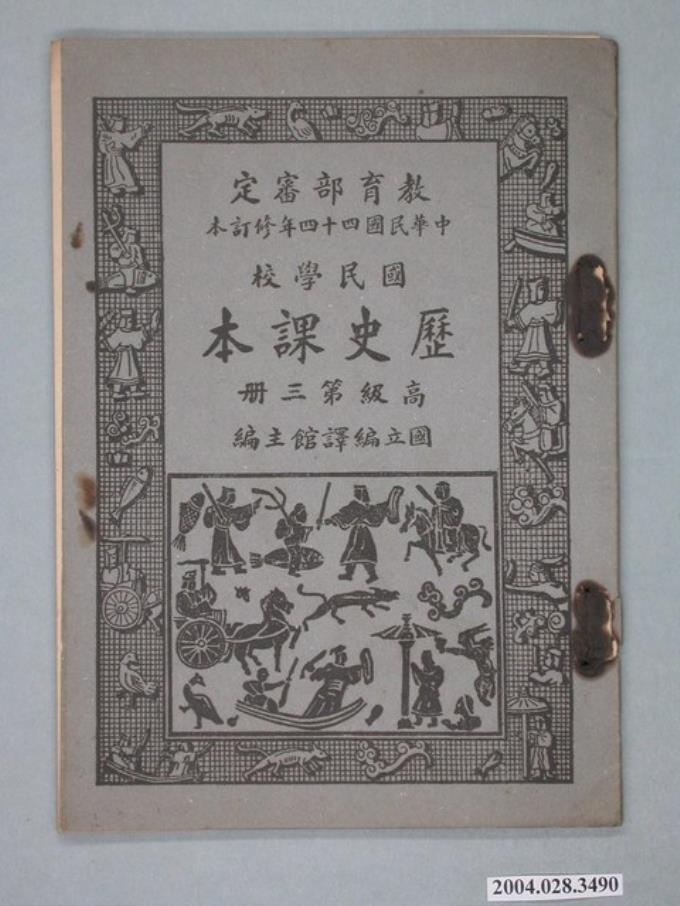 教育部審定
中華民國四十四年修訂本
國民學校
歷史課本
高級第三冊
國立編譯館主編
2004.028.3490